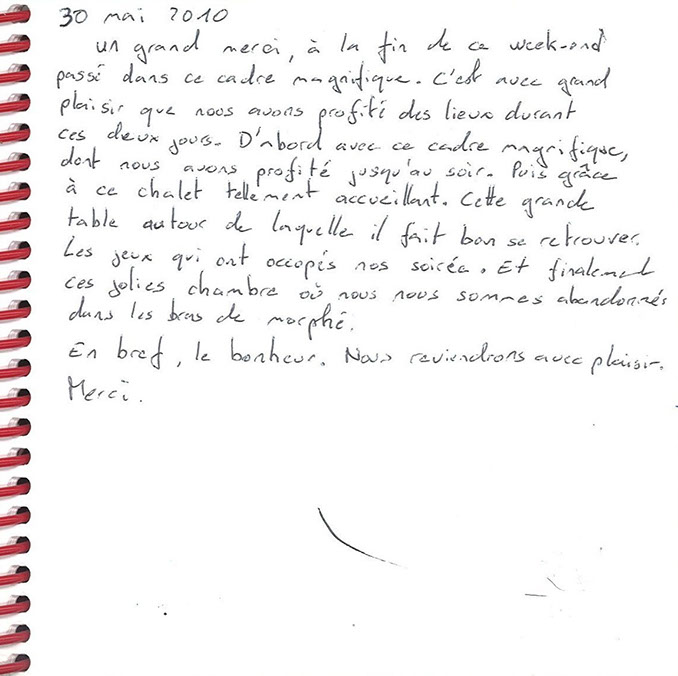 30 mai 2010
un grand merci, à la fin de ce week-end
passé dans ce cadre magnifique. C'est avec grand
plaisir que nous avons profité des lieux durant
ces deux jours. D'abord avec ce cadre magnifique,
dont nous avons profité jusqu'au soir. Puis grâce
à ce chalet tellement accueillant. Cette grande
table autour de laquelle il fait bon se retrouver.
Les jeux qui ont occopés nos soirée. Et finalement
ces jolies chambre où nous nous sommes abandonnés
dans les bras de morphé.
En bref, le bonheur. Nous reviendrons avec plaisir.
Merci.